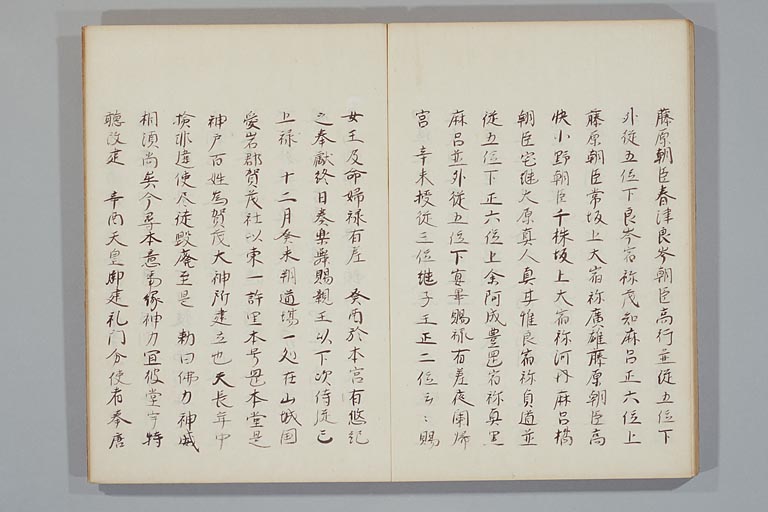 藤原朝臣春津良岑朝臣高行並従五位下
外従五位下良岑宿祢茂知麻呂正六位上
藤原朝臣常坂上大宿祢広雄藤原朝臣高
快小野朝臣千株坂上大宿祢河内麻呂橘
朝臣宅継大原真人真甘惟良宿祢貞道並
従五位下正六位上余阿成豊罡宿祢真黒
麻呂並外従五位下宴畢賜禄有差夜闌帰
宮 辛未授従三位継子王正二位云〻賜
女王及命婦禄有差 癸酉於本宮有悠紀
之奉献終日奏楽舞賜親王以下次侍従已
上禄 十二月癸未朔道場一処在山城国
愛宕郡賀茂社以東一許里本号罡本堂是
神戸百姓為賀茂大神所建立也天長年中
検非違使尽従毀廃至是 勅曰佛力神威
相須尚矣今尋本意事縁神力宜彼堂宇特
聴改建 辛酉天皇御建礼門分使者奉唐